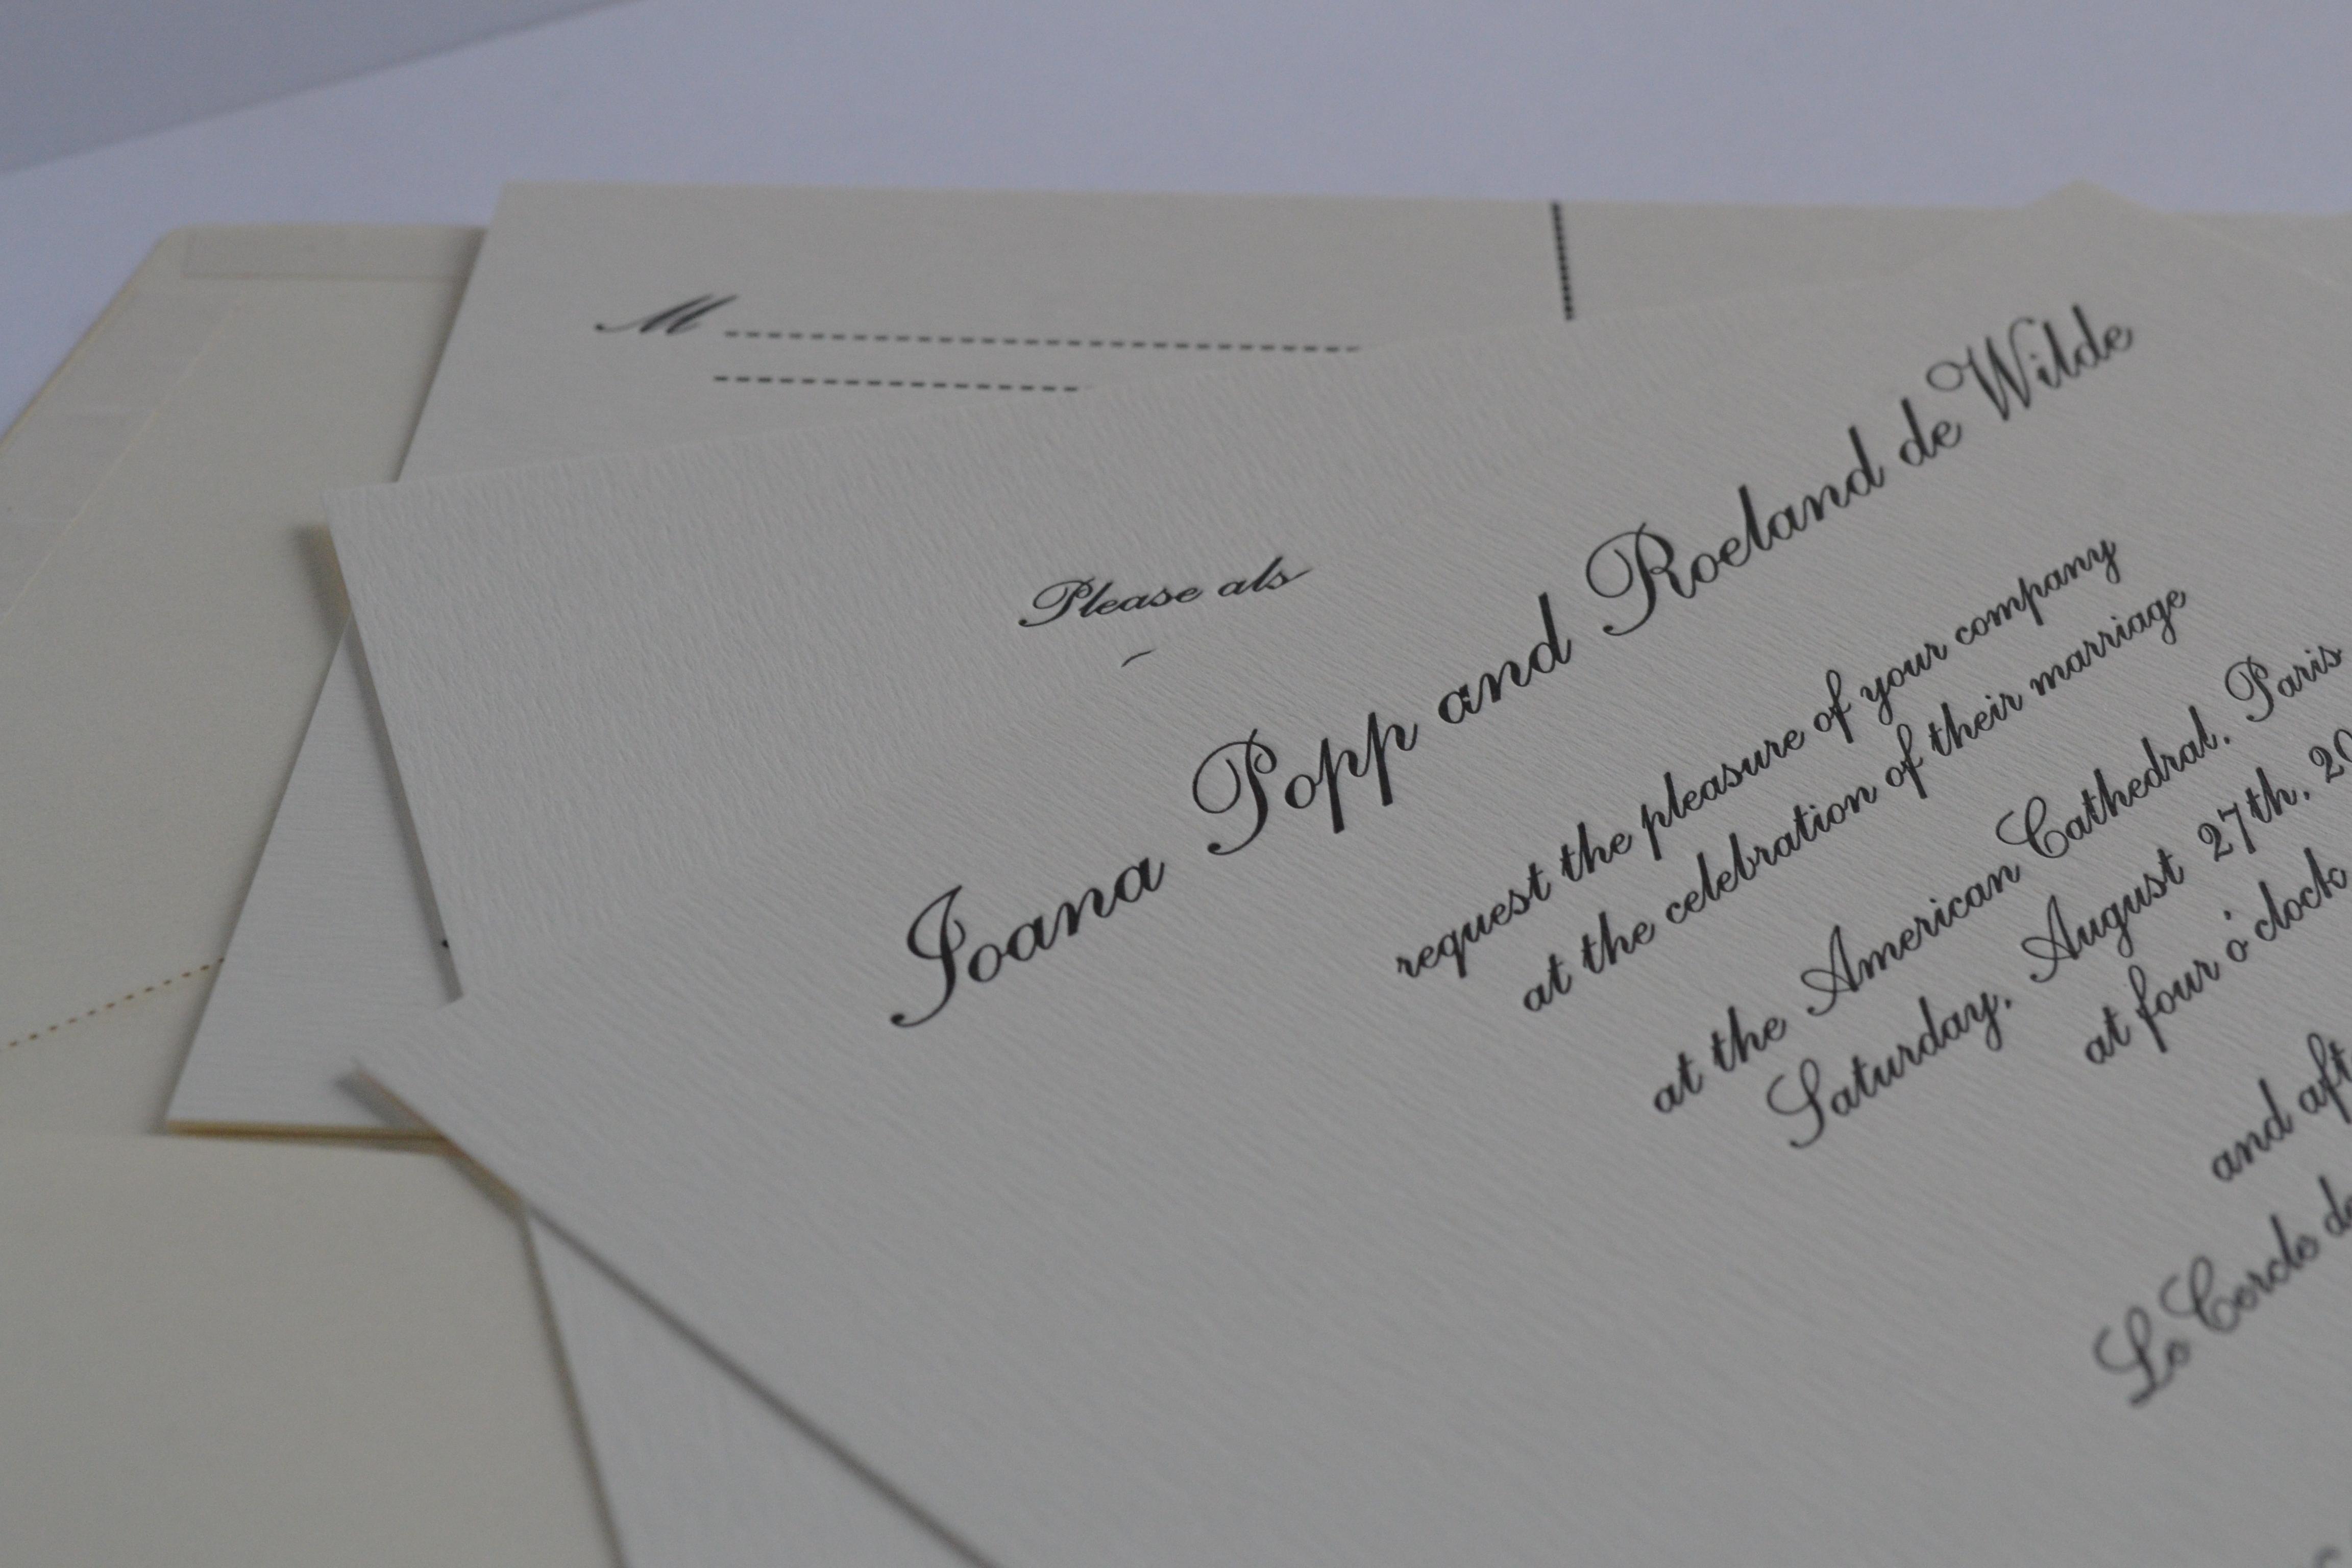 M
Please als
Ioana Popp and Roeland de Wilde
request the pleasure of your company
at the celebration of their marriage
at the American Cathedral, Paris
Saturday, August 27th, 20
at four o'clock
and aft
Le Cercle de